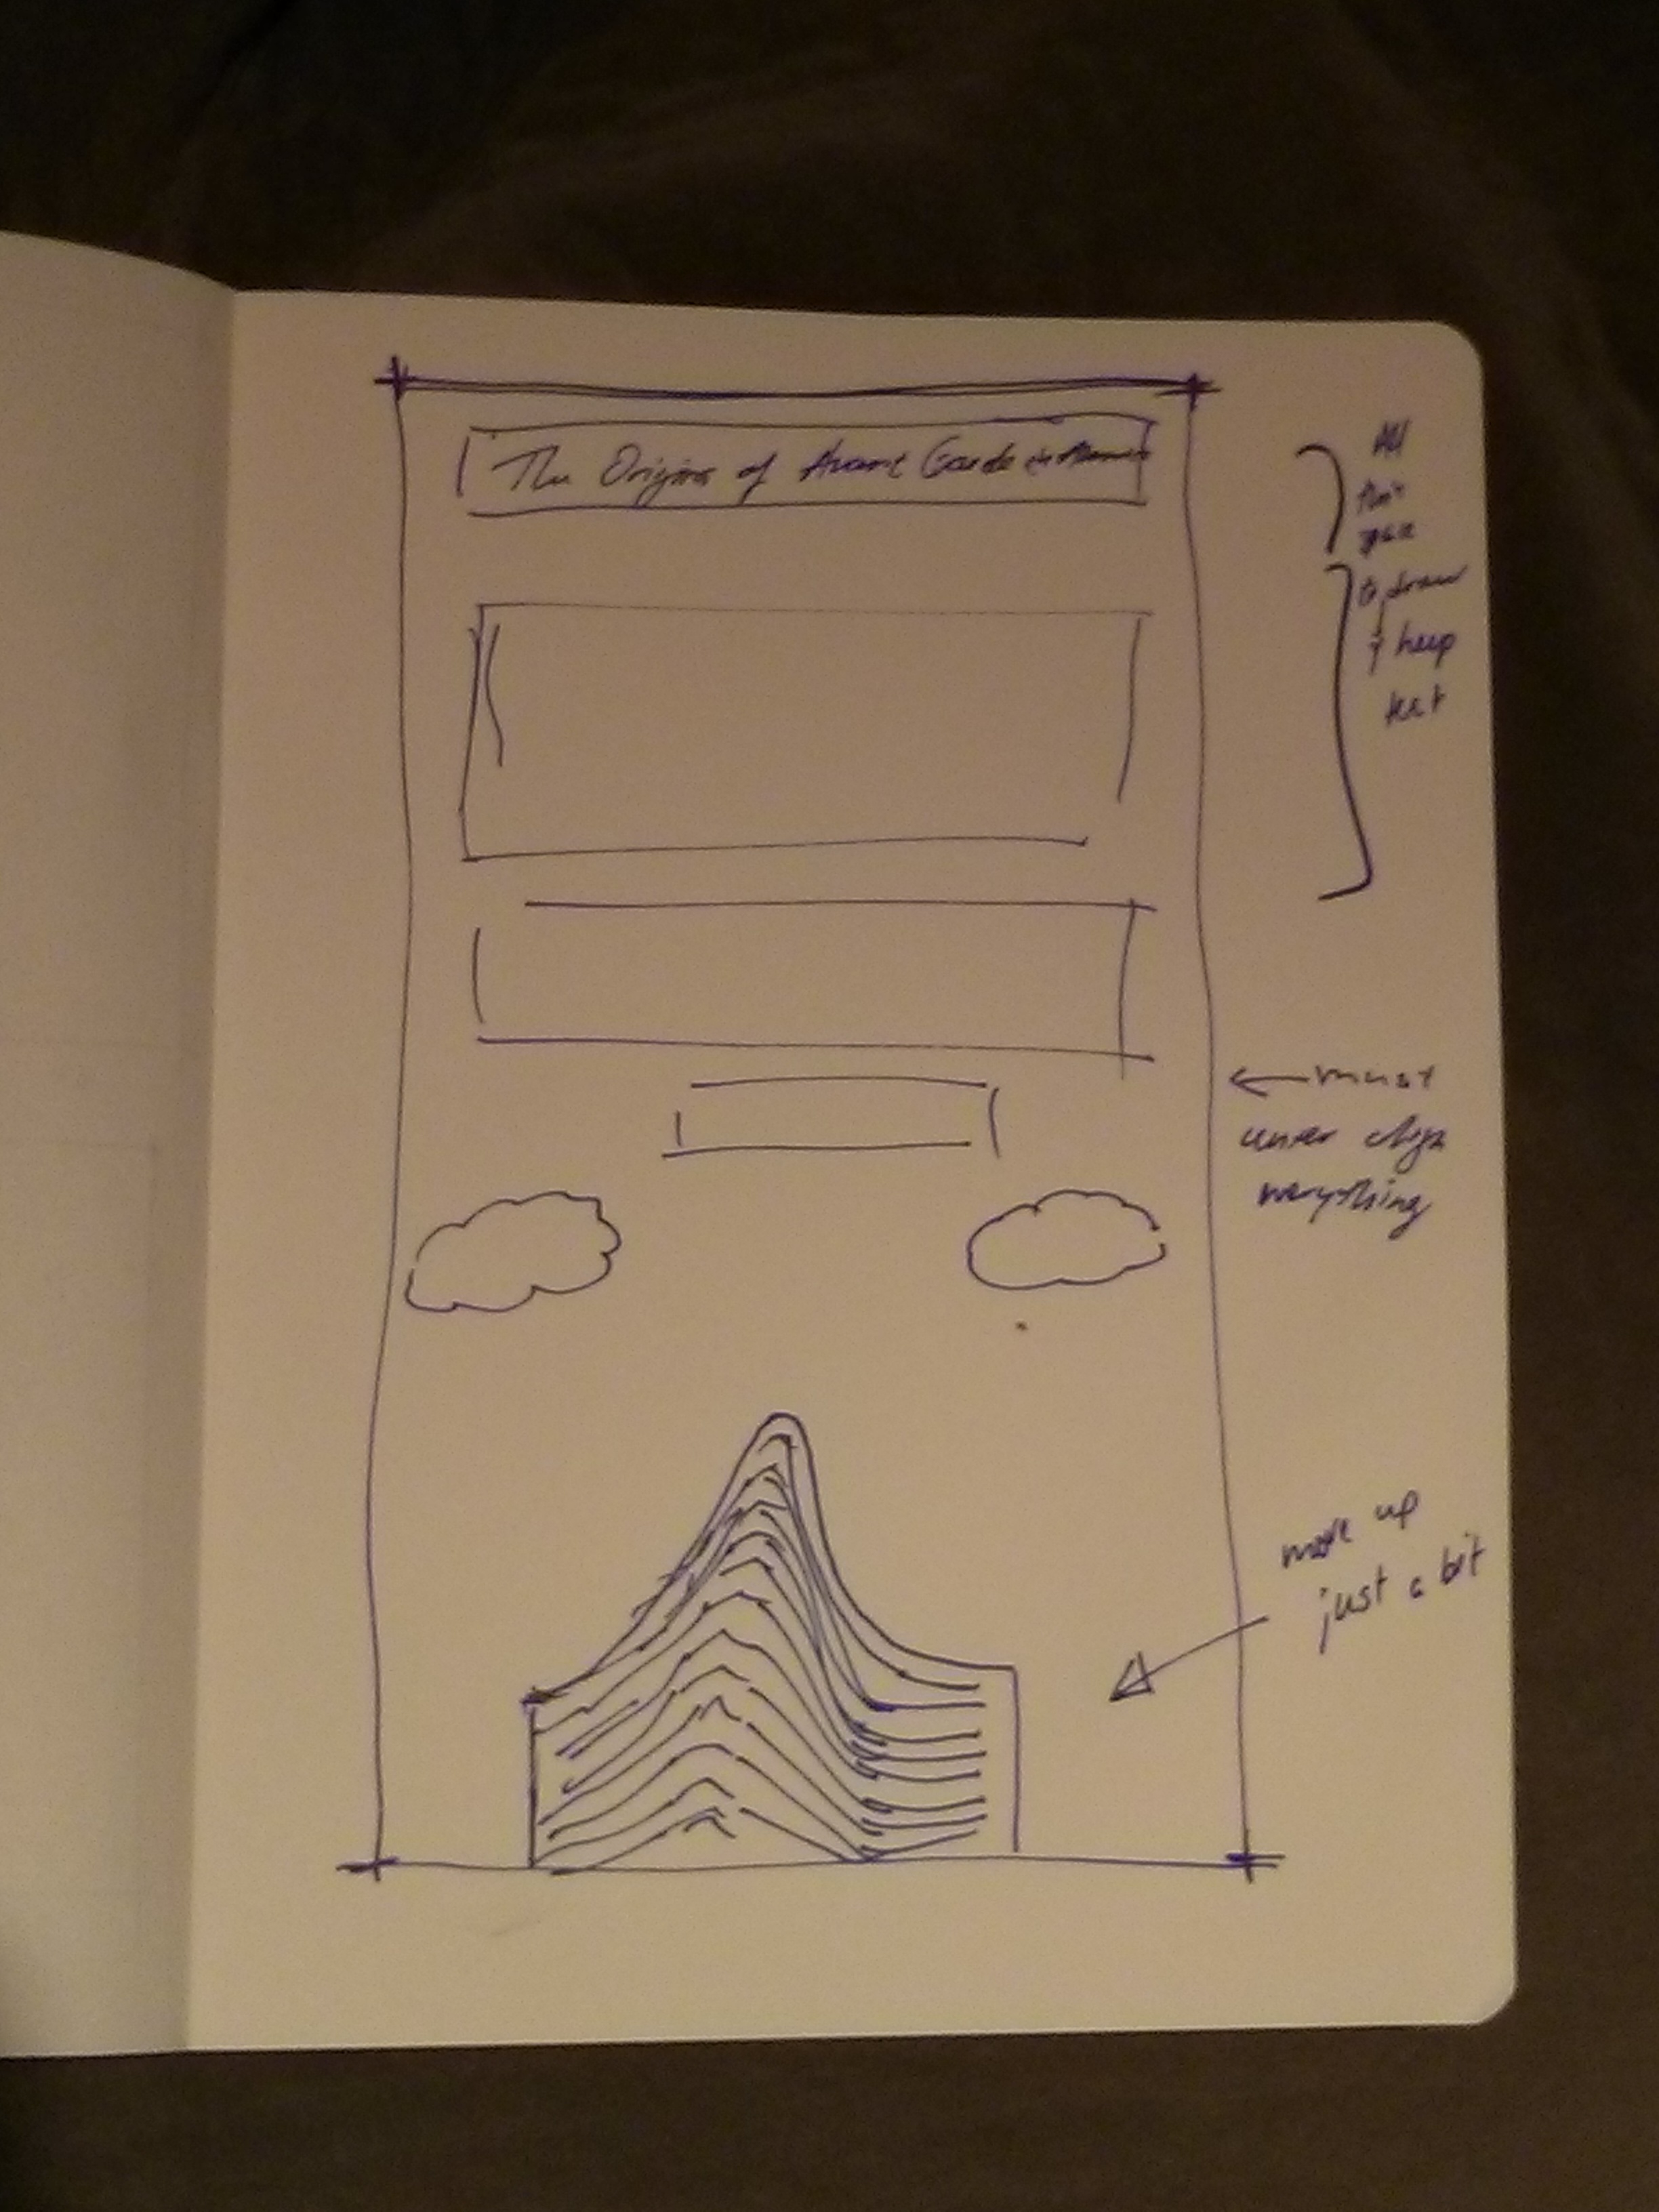 The Origins of Avant Garde in
All
this
space
to draw
& keep
text
must
center align
everything
move up
just a bit